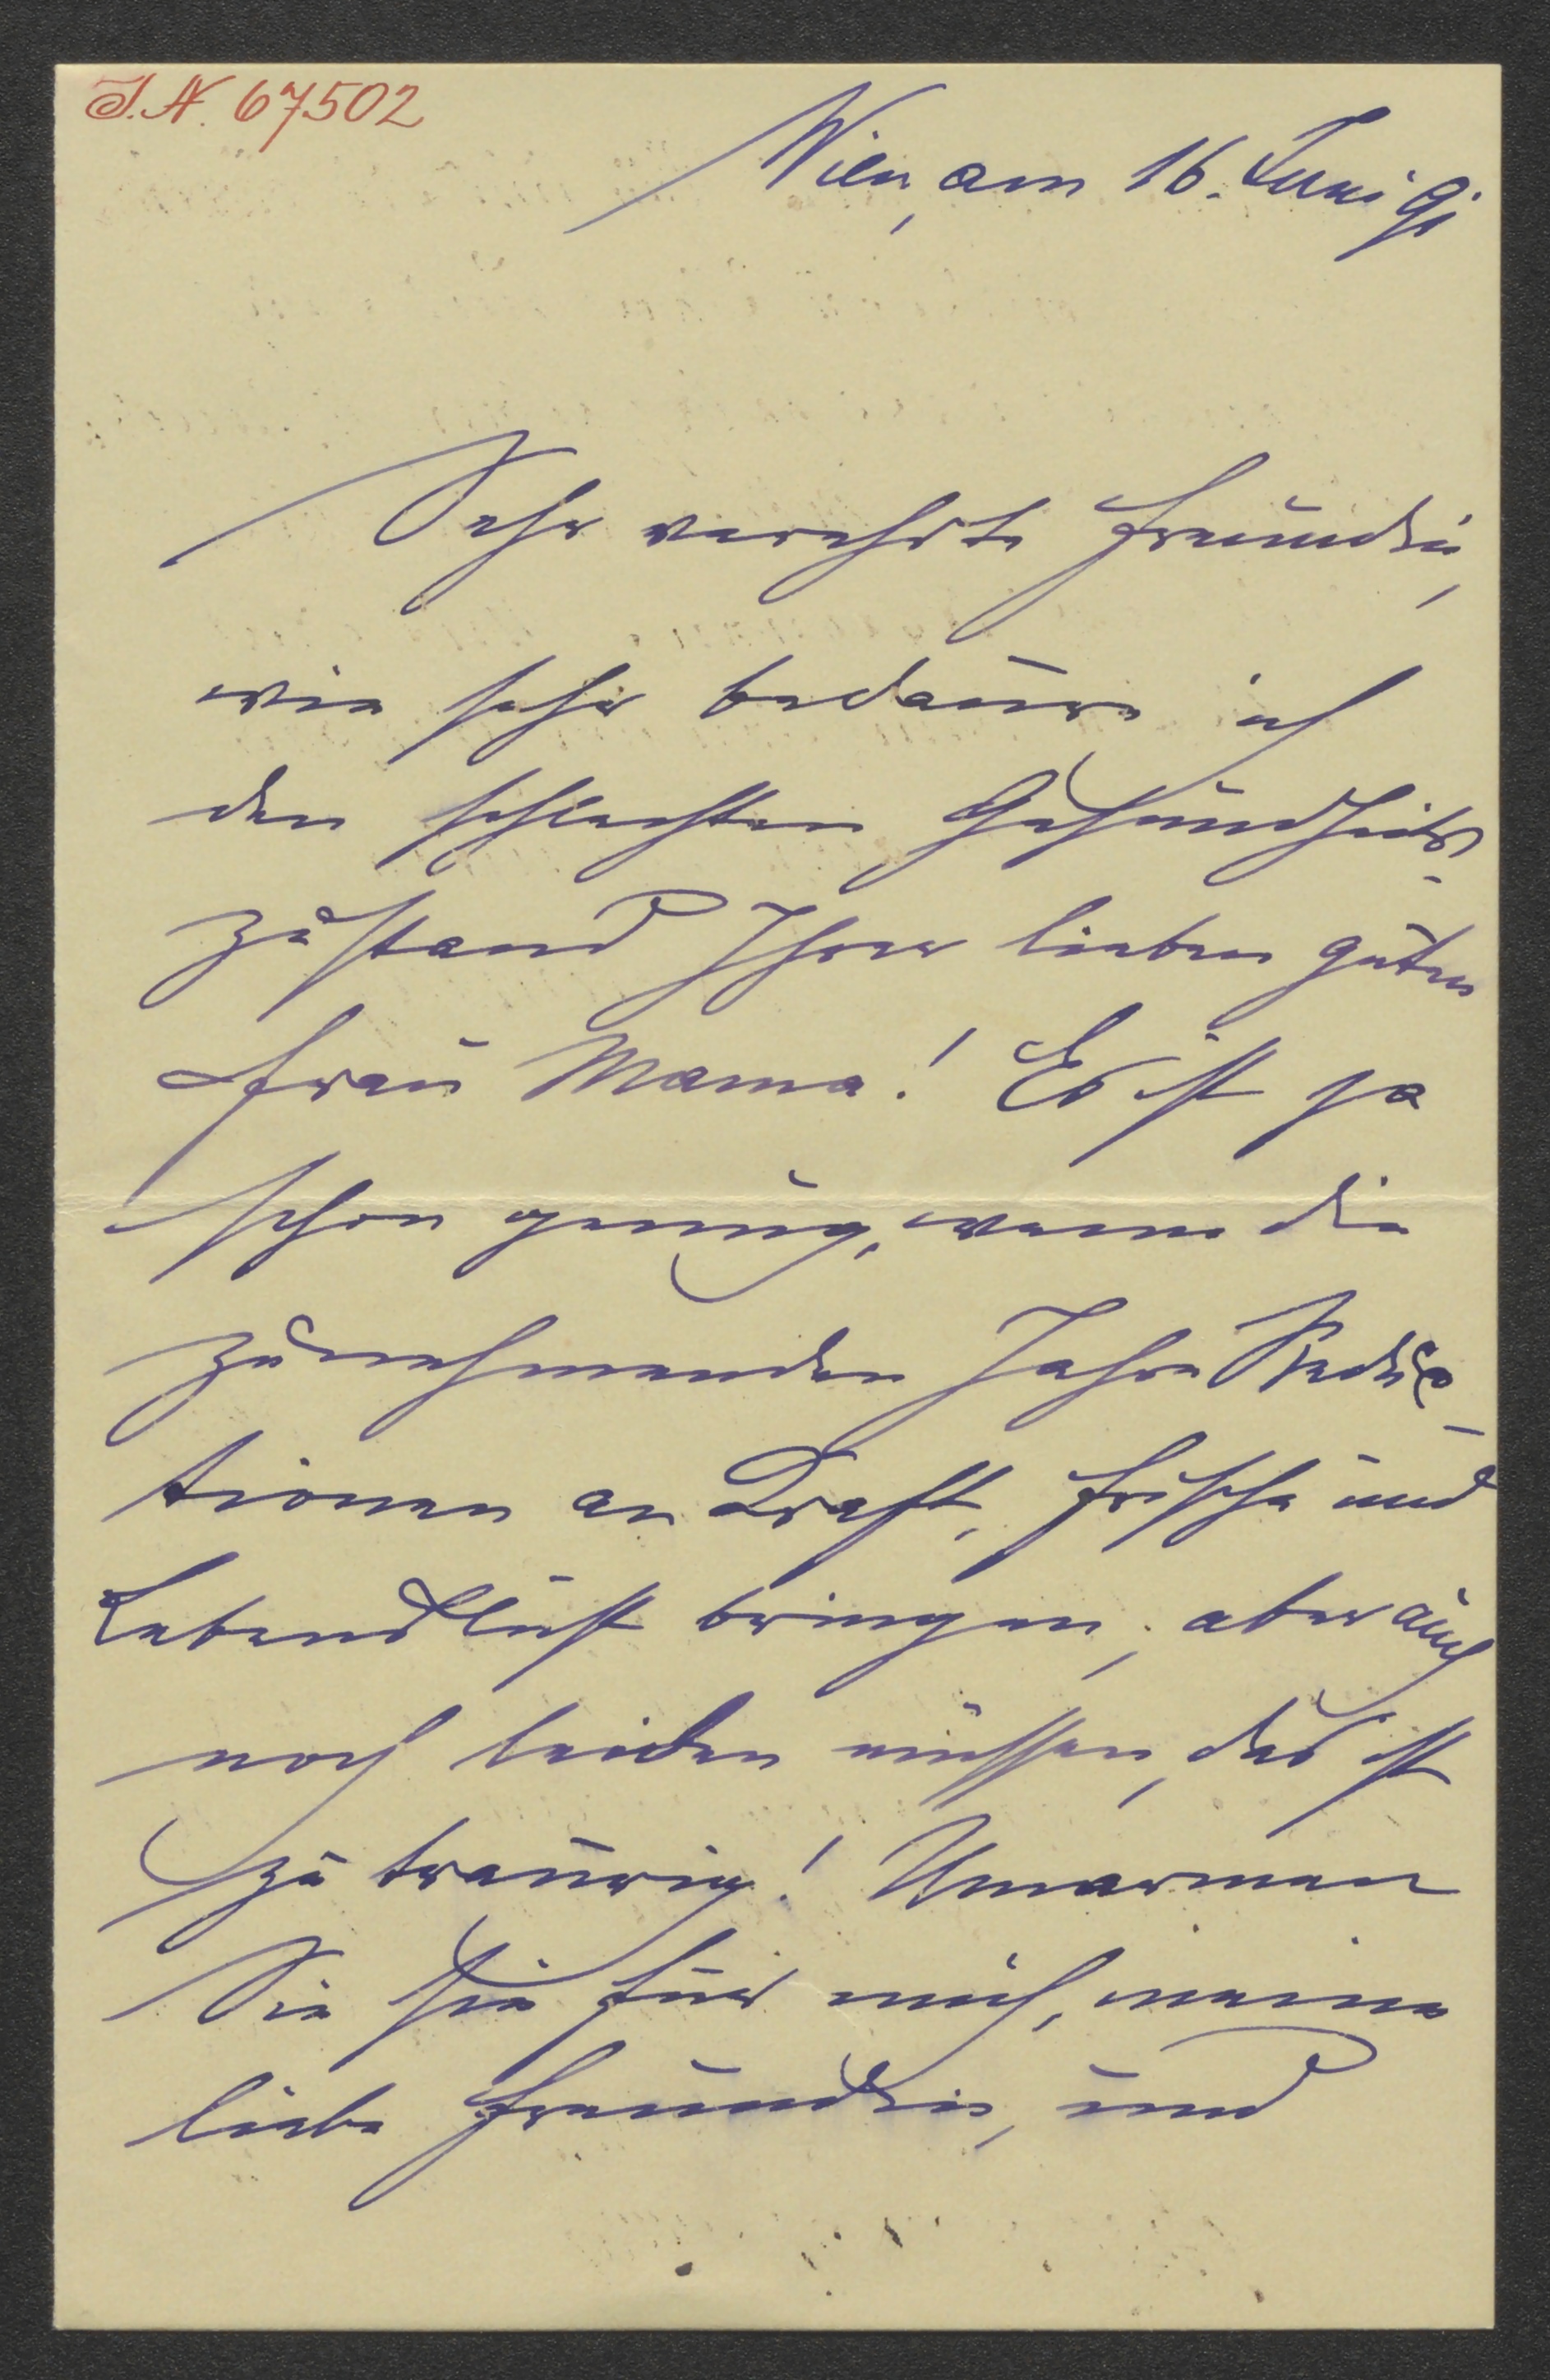 J.N. 67502
Wien, am 16. Juni 91
Sehr verehrte Freundin,
wie sehr bedaure ich
den schlechten Gesundheits-
zustand Ihrer lieben guten
Frau Mama! Es ist ja
schon genug, wenn die
zunehmenden Jahre Reduc-
tionen an Kraft, Frische und
Lebenslust bringen, aber auch
noch leiden müssen, das ist
zu traurig! Umarmen
Sie sie für mich, meine
liebe Freundin, und